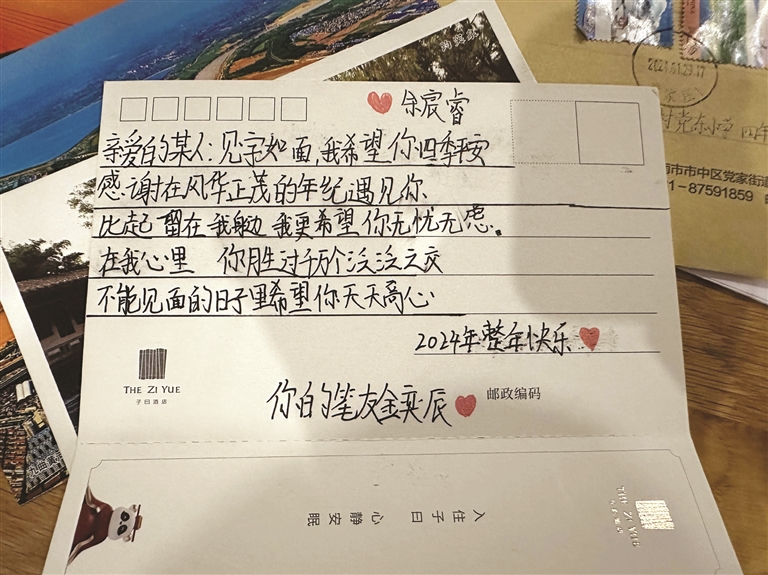 余宸睿
亲爱的某人:见字如面,我希望你四季平安
感谢在风华正茂的年纪遇见你
比起留在我身边我更希望你无忧无虑。
在我心里 你胜过千万个泛泛之交
不能见面的日子里希望你天天高心
2024年整年快乐
THE ZI YUE
子曰酒店
你的笔友金奕辰
邮政编码
入住子曰 心静安眠
THE ZI YUE
2024.01.29.17
南市市中区党家街道
1-87591859